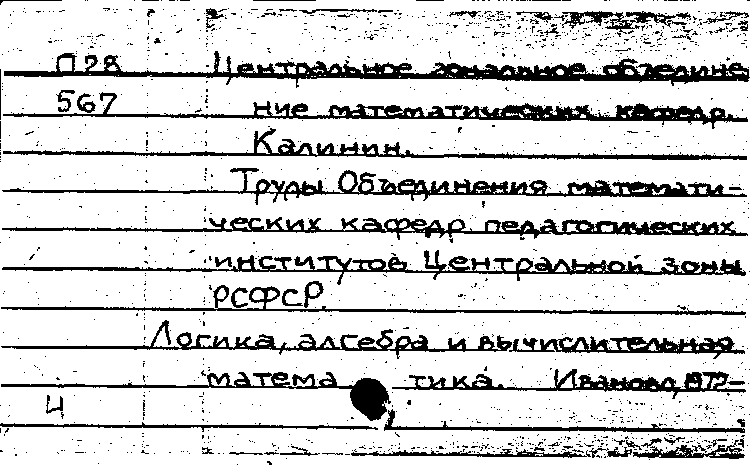 П28 Центральное зональное объедине
567 ние математических кафедр.
Калинин.
Труды Объединения математи-
ческих кафедр педагогических
институтов Центральной зоны
РСФСР.
Логика, алгебра и вычислительная
матема тика. Иваново, 1972-
Ч